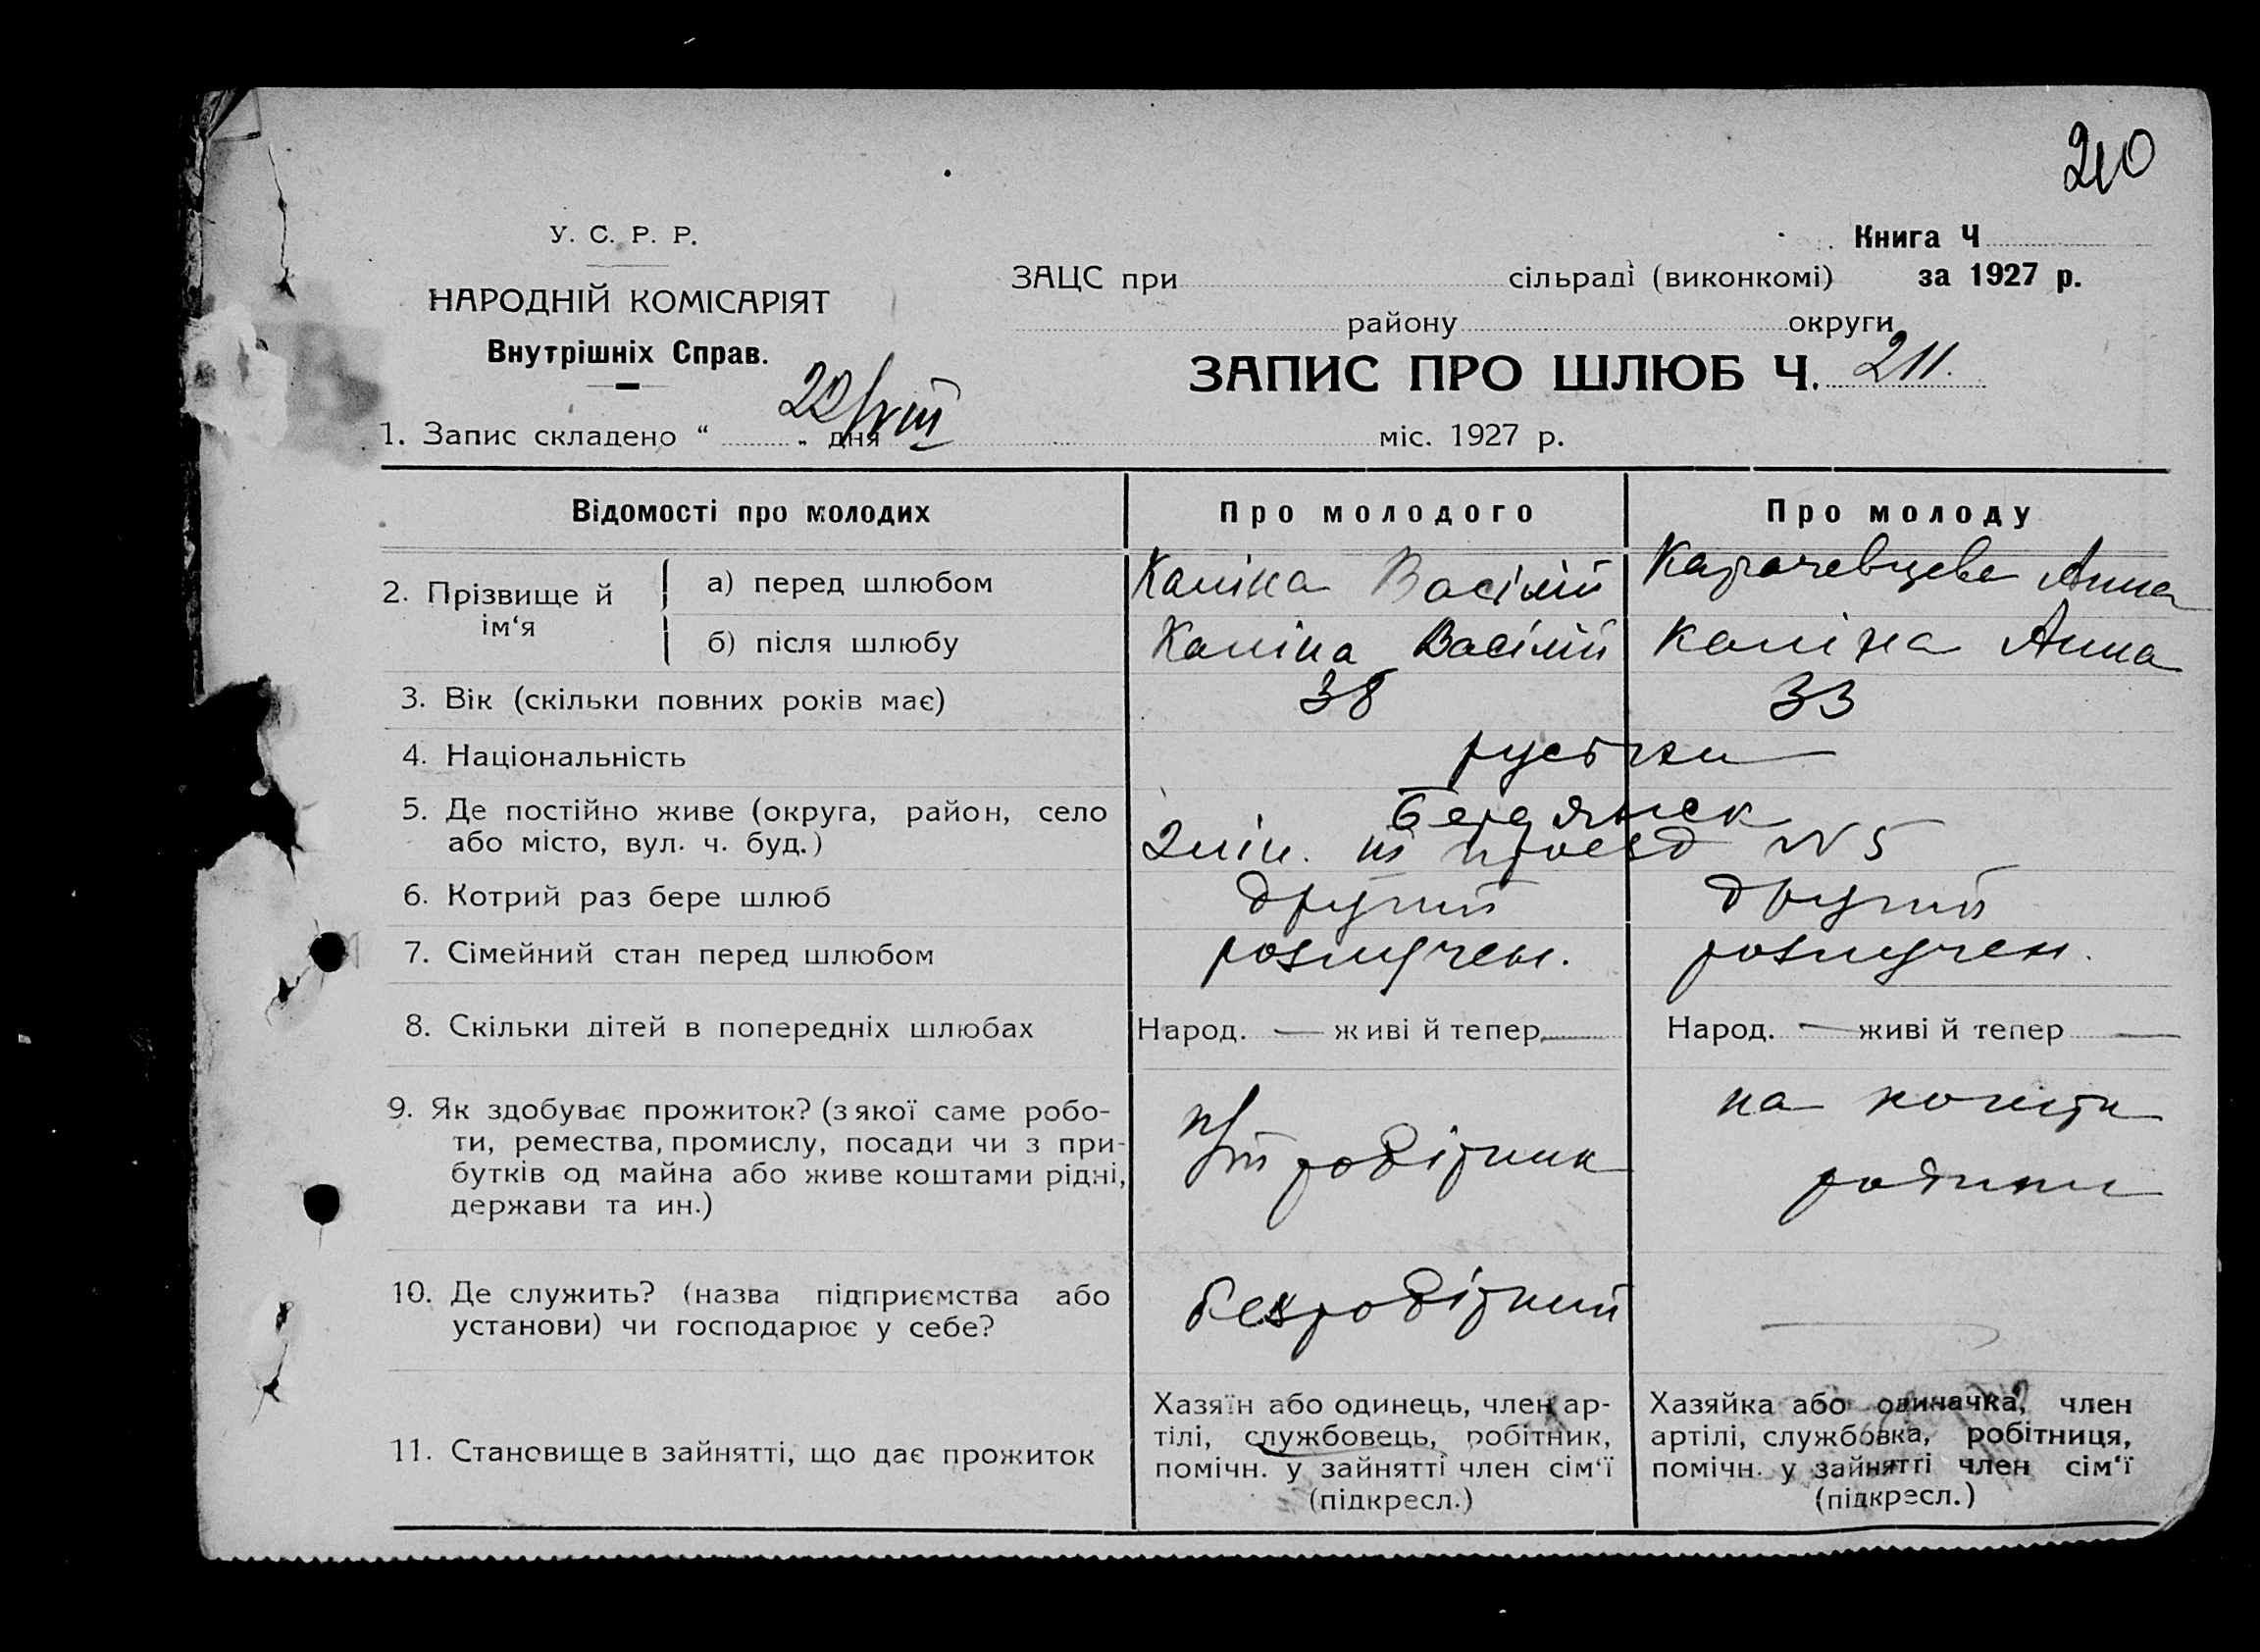 210
У. С. Р. Р.
НАРОДНІЙ КОМІСАРІЯТ
Внутрішніх Справ.
Книга Ч
за 1927 р.
ЗАЦС при сільраді (виконкомі)
району округи
ЗАПИС ПРО ШЛЮБ Ч. 211.
1. Запис складено “ „ дня 22/VIII міс. 1927 р.
Відомості про молодих Про молодого Про молоду
2. Прізвище й ім‘я
а) перед шлюбом Каніна Васілій Карачевцева Анна
б) після шлюбу Каніна Васілій Каніна Анна
3. Вік (скільки повних років має) 38 33
4. Національність руські
5. Де постійно живе (округа, район, село
або місто, вул. ч. буд.)
Бердянск
2 лін. III проезд № 5
6. Котрий раз бере шлюб другий другий
7. Сімейний стан перед шлюбом розлучен. розлучен.
8. Скільки дітей в попередніх шлюбах Народ. — живі й тепер — Народ. — живі й тепер —
9. Як здобуває прожиток? (з якої саме робо-
ти, ремества, промислу, посади чи з при-
бутків од майна або живе коштами рідні,
держави та ин.)
робітник
на кошти
родини
10. Де служить? (назва підприємства або
установи) чи господарює у себе?
безробітний —
11. Становище в зайнятті, що дає прожиток
Хазяїн або одинець, член ар-
тілі, службовець, робітник,
помічн. у зайнятті член сім‘ї
(підкресл.)
Хазяйка або одиначка, член
артілі, службовка, робітниця,
помічн. у зайнятті член сім‘ї
(підкресл.)